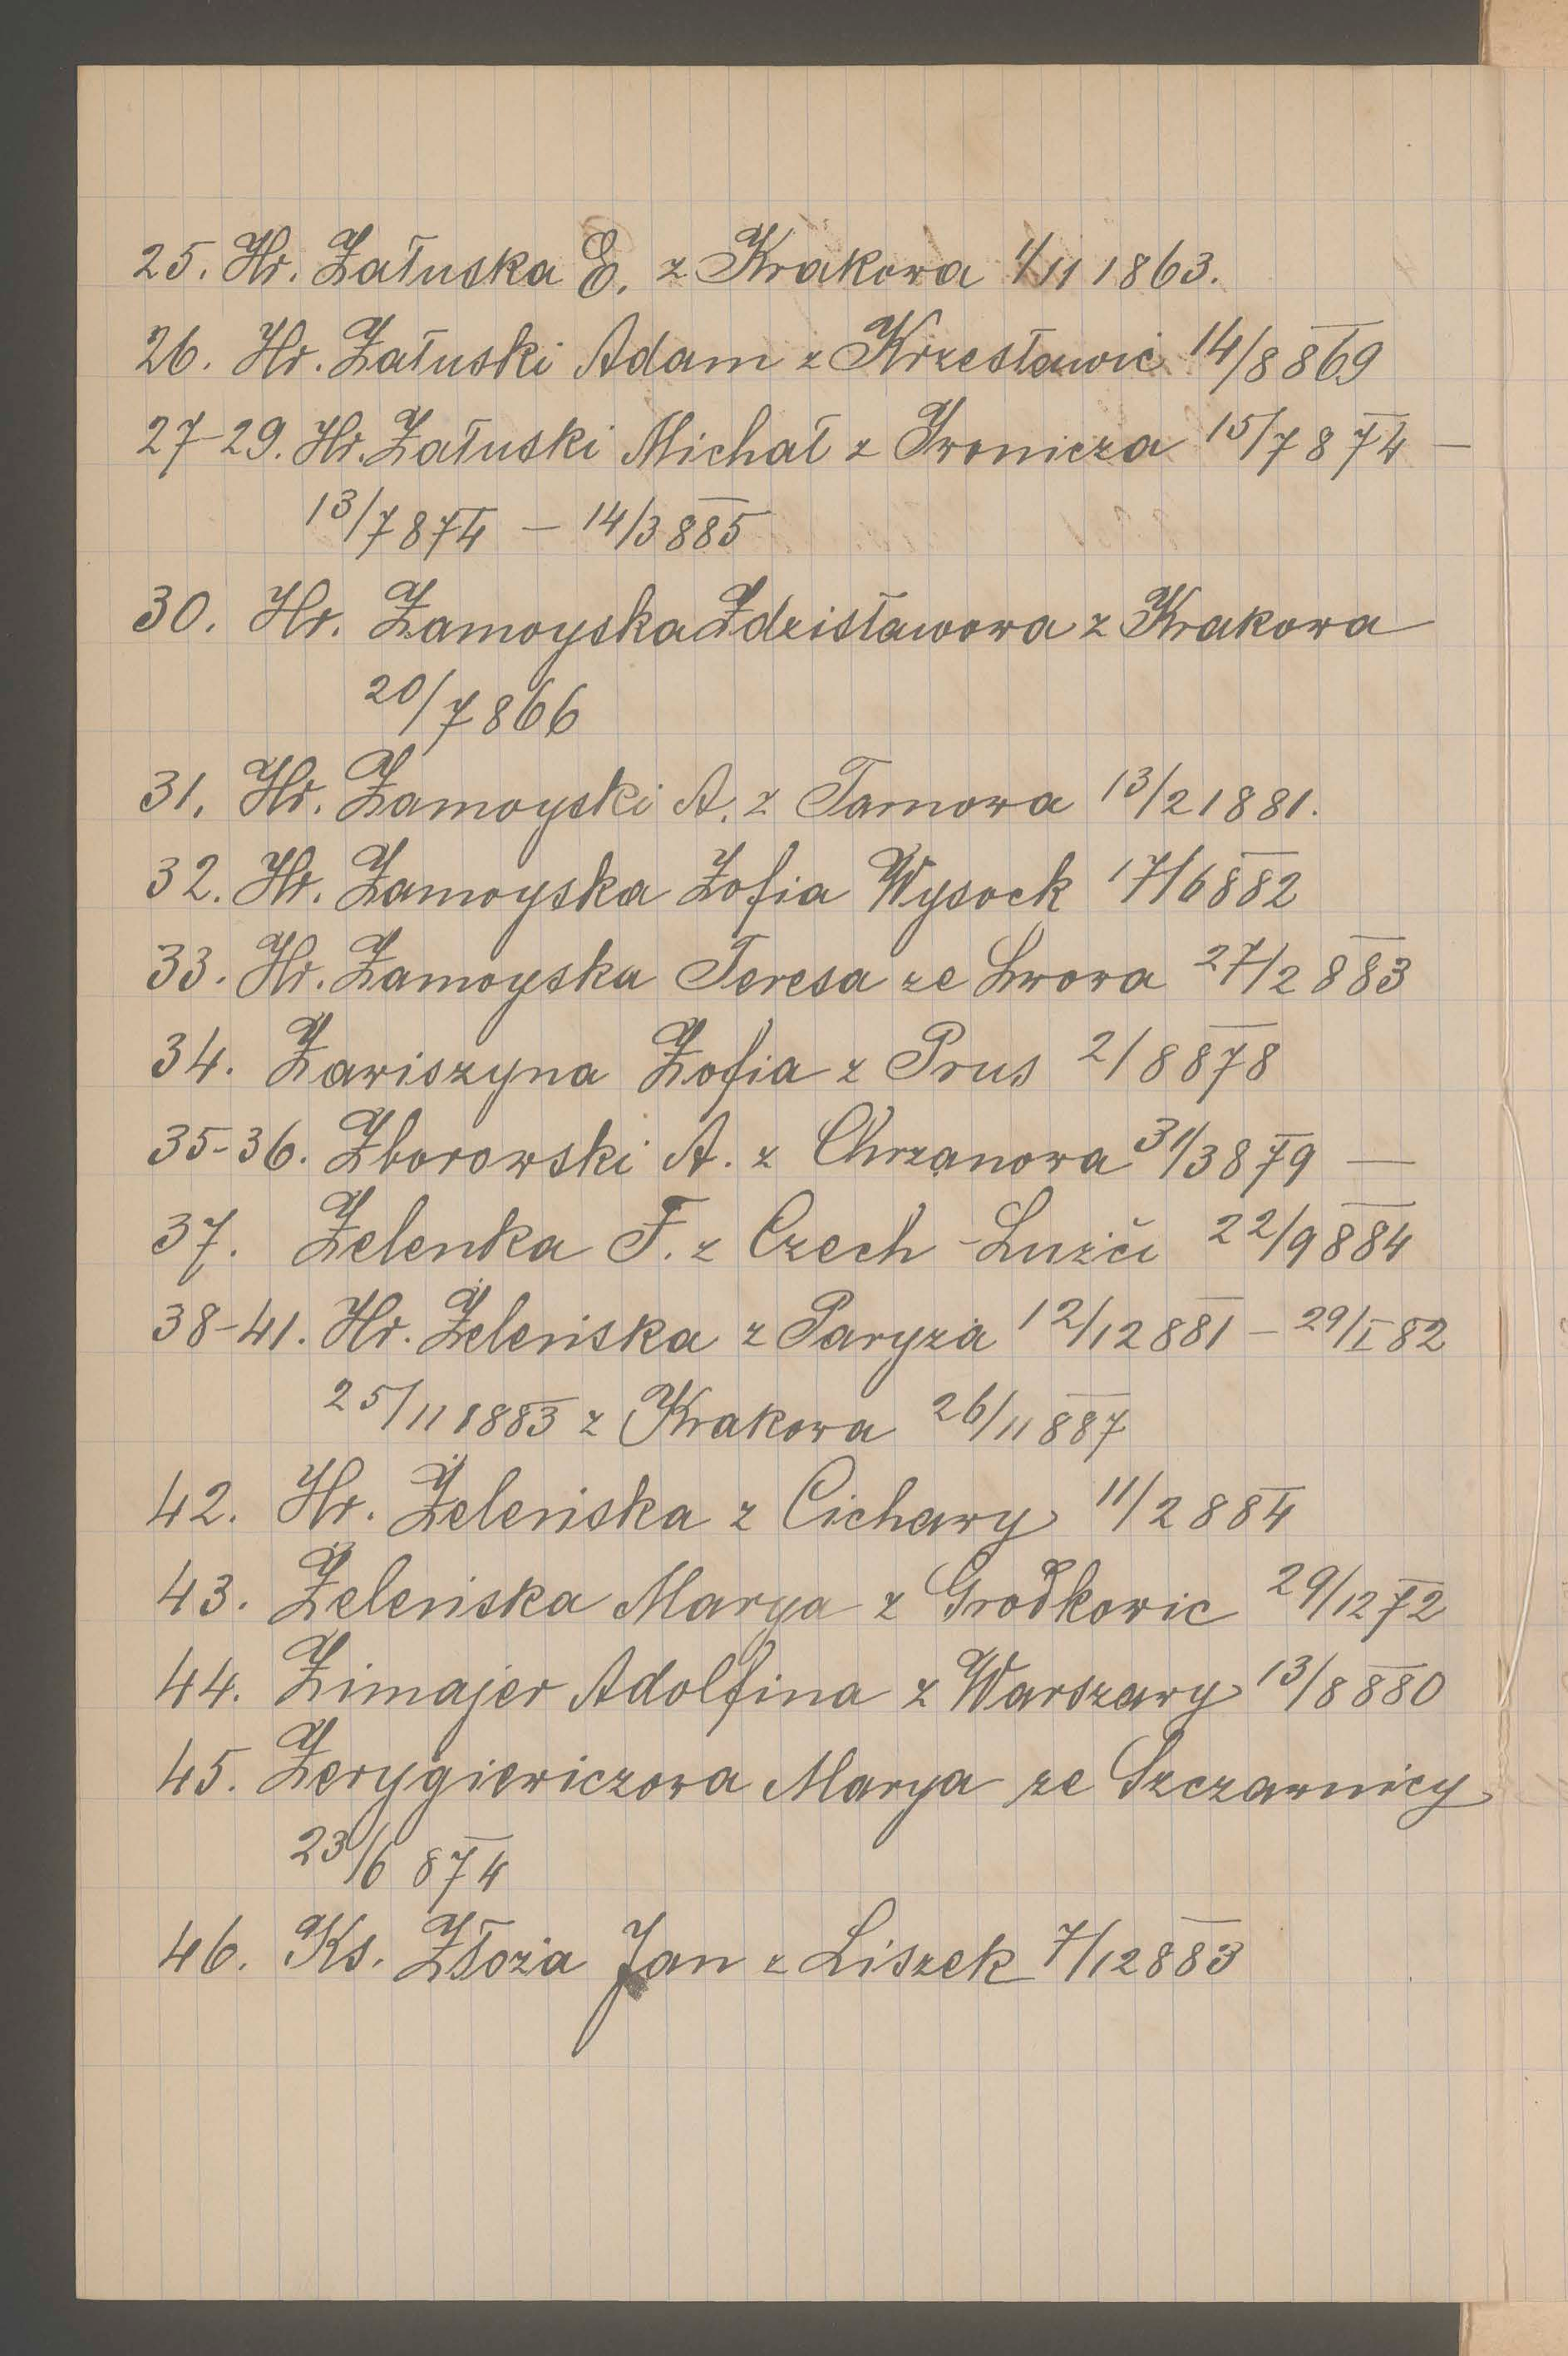 25. Hr. Załuska E. z Krakowa 1/11 1863.
26. Hr. Załuski Adam z Krzesławic 14/8 869
27-29. Hr. Załuski Michał z Iwonicza 15/7 874 —
13/7 874 — 14/3 885
30. Hr. Zamoyska Zdzisławowa z Krakowa
20/7 866
31. Hr. Zamoyski A. z Tarnowa 13/2 1881.
32. Hr. Zamoyska Zofia Wysock 17/6 882
33. Hr. Zamoyska Teresa ze Lwowa 27/2 883
34. Zawiszyna Zofia z Prus 2/8 878
35-36. Zborowski A. z Chrzanowa 31/3 879 —
37. Zelenka F. z Czech - Lužči 22/9 884
38-41. Hr. Żeleńska z Paryża 12/12 881 — 29/I 82
25/11 1883 z Krakowa 26/11 887
42. Hr. Żeleńska z Cichawy 11/2 884
43. Żeleńska Marya z Grodkowic 29/12 72
44. Zimajer Adolfina z Warszawy 13/8 880
45. Zerygiewiczowa Marya ze Szczawnicy
23/6 874
46. Ks. Złoża Jan z Liszek 7/12 883